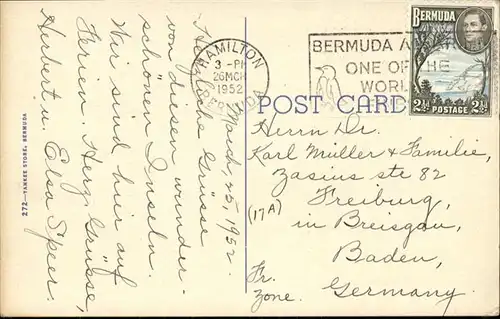 272—YANKEE STORE, BERMUDA
March, 25, 1952.
Herzliche Grüsse
von diesen wunder-
schönen Inseln.
Wir sind hier auf
Ferien Herz. Grüsse,
Herbert u. Elsa Speer.
HAMILTON
3 - PM
26 MCH
1952
BERMUDA
BERMUDA
ONE OF THE
WORL
BERMUDA
2½d POSTAGE 2½d
POST CARD
Herrn Dr.
Karl Müller & Familie,
Zasius ste 82
Freiburg
(17A)
in Breisgau,
Baden,
Fr.
Zone.
Germany.